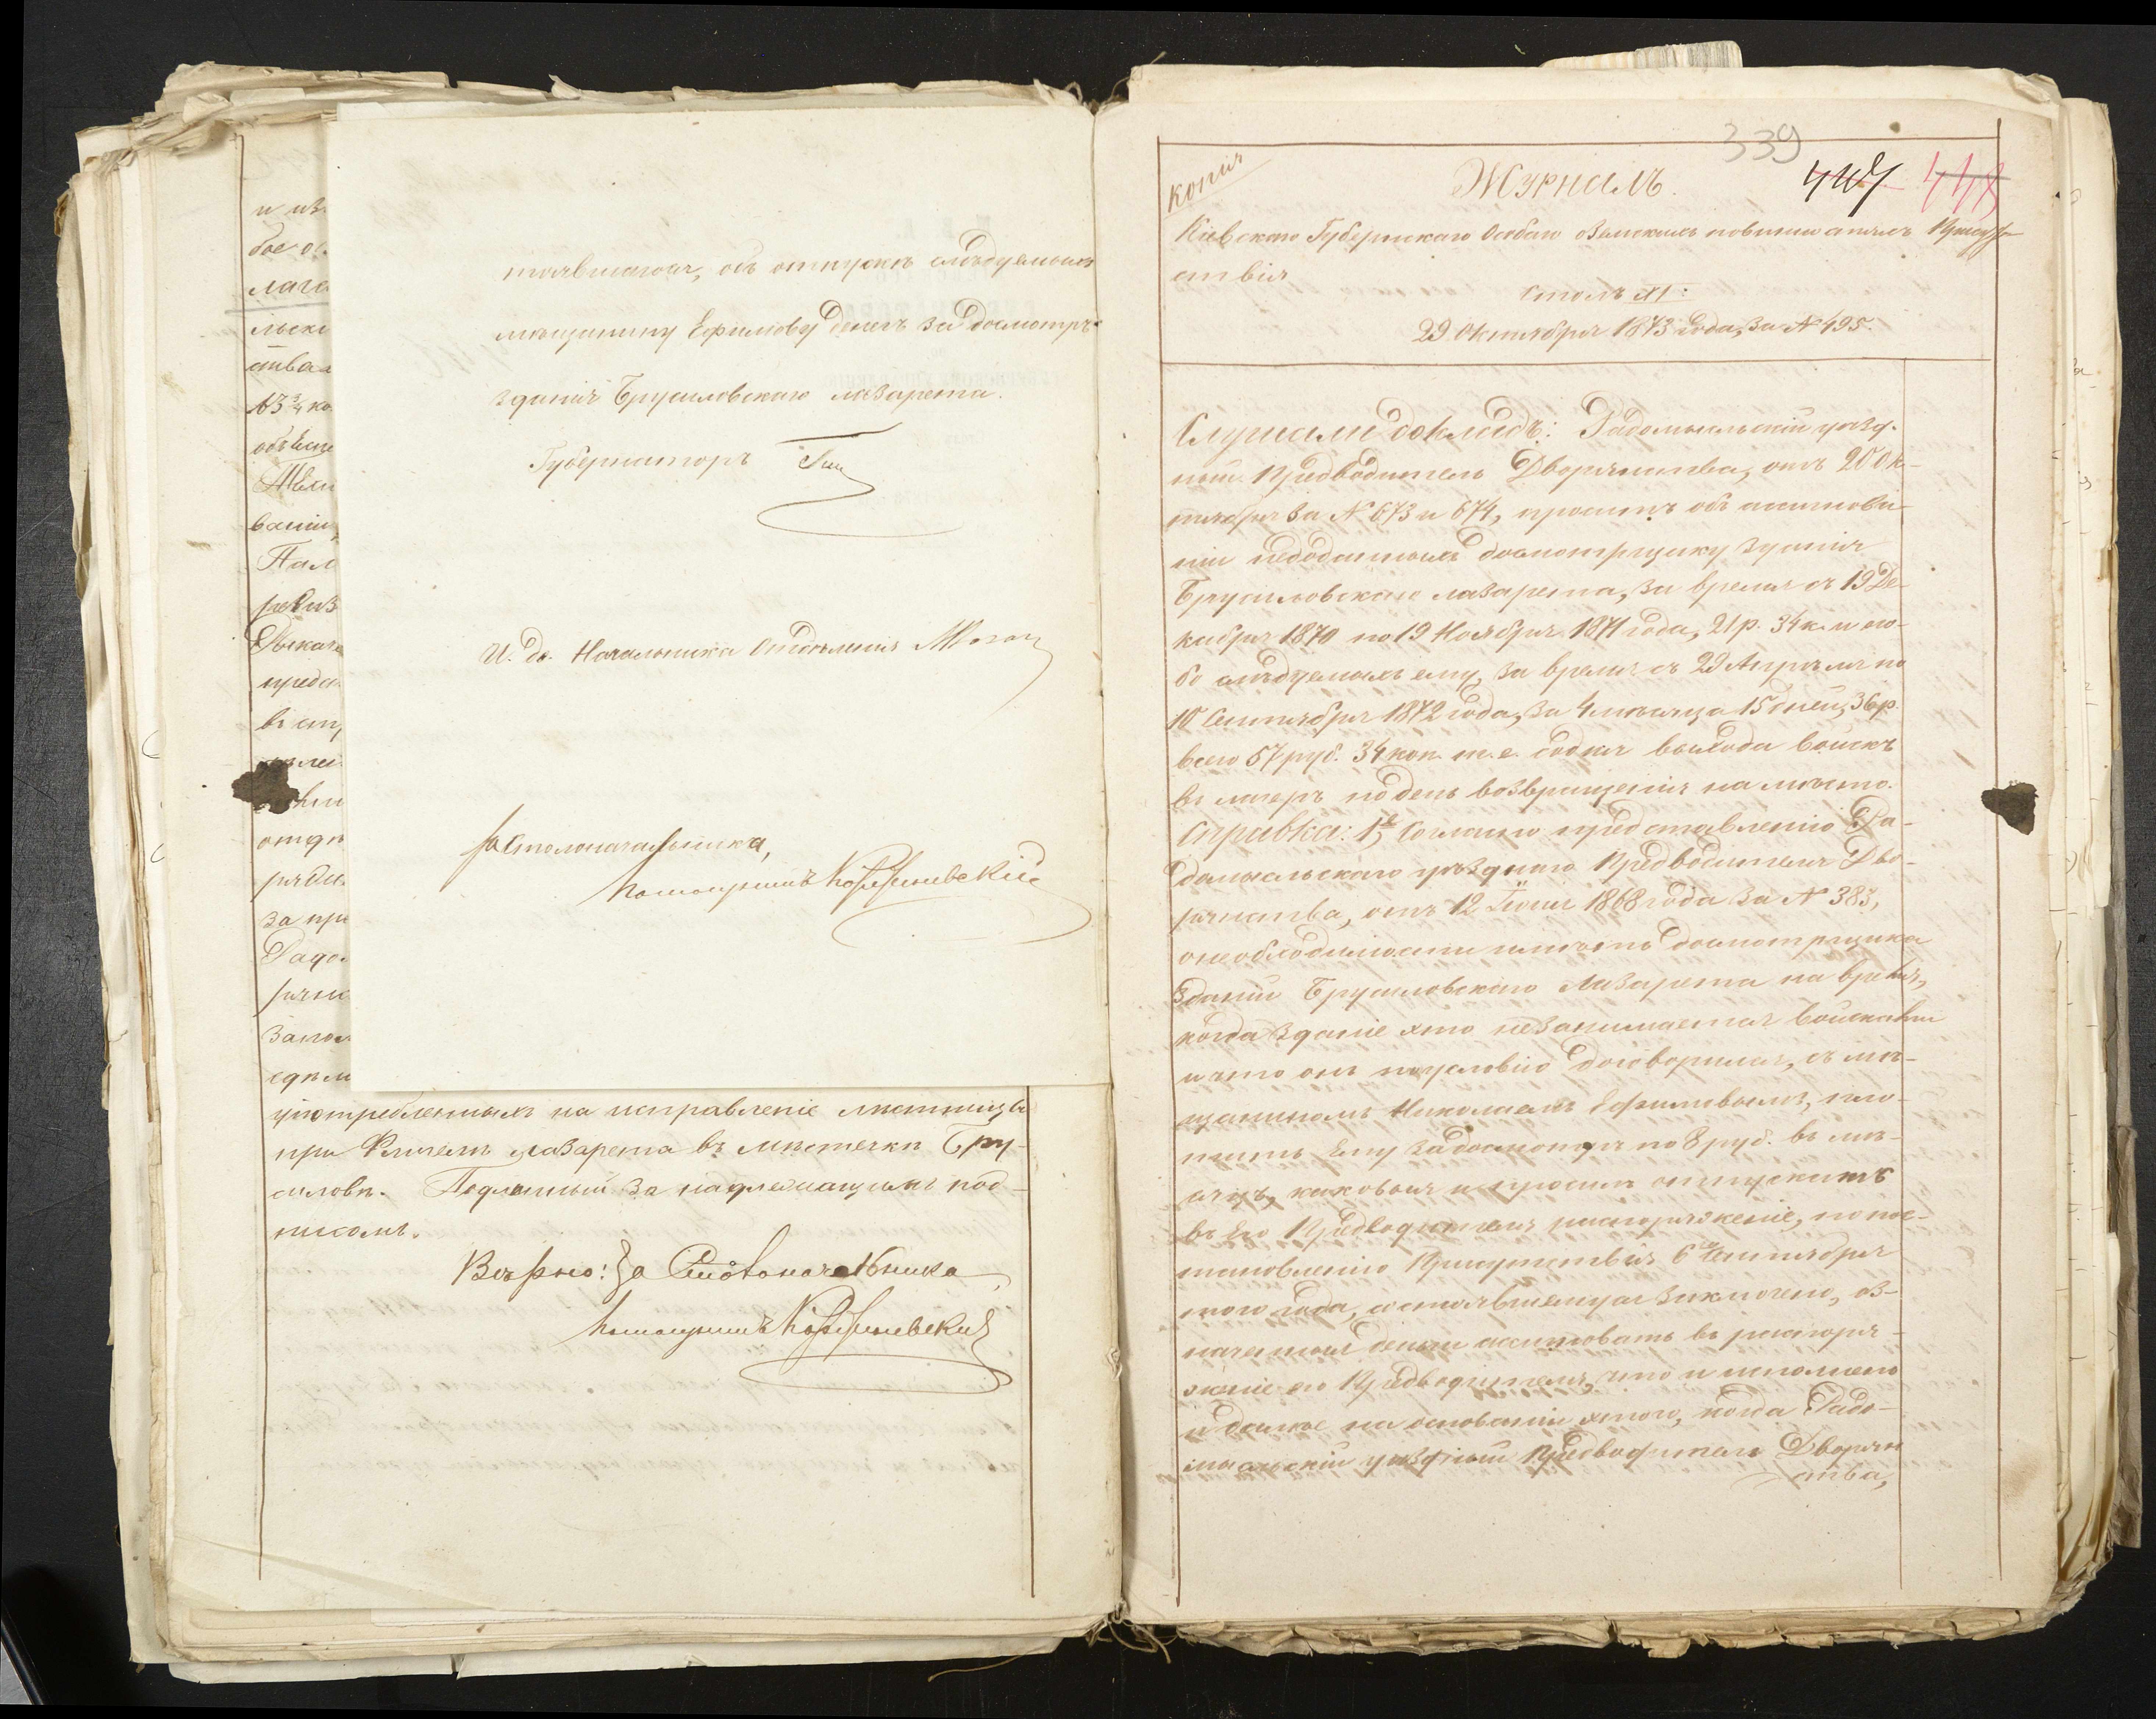 тоявшагося, объ отпускѣ слѣдуемыхъ
мѣщанину Ефимову денегъ за досмотръ
зданія Брусиловскаго лазарета.
Губернаторъ
И. д. Начальника Отдѣленія
За Столоначальника,
Помощникъ
и из
бое о
лаге
льско
ства
13 3/4 ко
объясн
вані
Пал
ревиз
предс
въ
отдѣ
за при
Радо
заклю
едѣл
употребленныхъ на исправленіе лѣстницы
при флигелѣ лазарета въ мѣстечкѣ Бру-
силовѣ. Подлинный за надлежащимъ под-
писомъ.
Вѣрно: За Столоначальника,
Помощникъ
339
копія
Журналъ.
447 448
Кіевскаго Губернскаго Особаго о Земскихъ повинностяхъ Присут-
ствія
Столъ XI:
29 Октября 1873 года, за № 495.
Слушали докладъ: Радомысльскій уѣзд-
ный Предводитель Дворянства, отъ 20 Ок-
тября за № 673 и 674, проситъ объ ассигнова-
ніи недоданныхъ досмотрщику зданія
Брусиловскаго лазарета, за время съ 19 Де-
кабря 1870 по 19 Ноября 1871 года, 21 р. 34 к. и осо-
бо слѣдуемыхъ ему, за время съ 29 Апрѣля по
10 Сентября 1872 года, за 4 мѣсяца 15 дней, 36 р.
всего 57 руб. 34 коп. т. е. со дня выхода войскъ
въ лагерь по день возвращенія на мѣсто.
Справка: 1е, Согласно представленію Ра-
домысльскаго уѣзднаго Предводителя Дво-
рянства, отъ 12 Іюня 1868 года за № 383,
о необходимости имѣть досмотрщика
зданій Брусиловскаго Лазарета на время,
когда зданіе это незанимается войсками
и что онъ по условію договорился, съ мѣ-
щаниномъ Николаемъ Ефимовымъ, пла-
тить Ему за досмотръ по 8 руб. въ мѣ-
сяцъ, каковыя и просилъ отпускать
въ его Предводителя распоряженіе, по пос-
тановленію Присутствія 6го Сентября
того года, состоявшемуся заключено, оз-
наченныя деньги ассигновать въ распоря-
женіе его Предводителя, что и исполнено
и далѣе на основаніи этого, когда Радо-
мысльскій уѣздный Предводитель Дворян
ства,